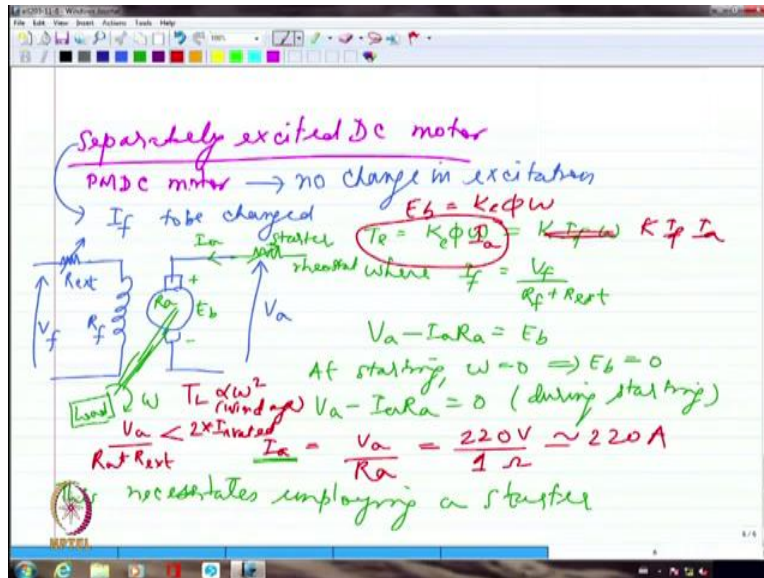 ell209-11-8 - Windows Journal
File Edit View Insert Actions Tools Help
Separately excited DC motor
PMDC motor → no change in excitation
I_f to be changed
E_b = K_e ϕ ω
T_e = K_e ϕ I_a = K I_f ω K I_f I_a
I_a starter rheostat
where I_f = V_f / (R_f + R_ext)
R_ext
V_f R_f R_a + E_b - V_a
V_a - I_a R_a = E_b
At starting, ω = 0 ⟹ E_b = 0
Load ω T_L ∝ ω² (windage)
V_a - I_a R_a = 0 (during starting)
V_a / (R_a + R_ext) < 2 × I_a rated
I_a = V_a / R_a = 220V / 1 Ω ≃ 220 A
This necessitates employing a starter
NPTEL